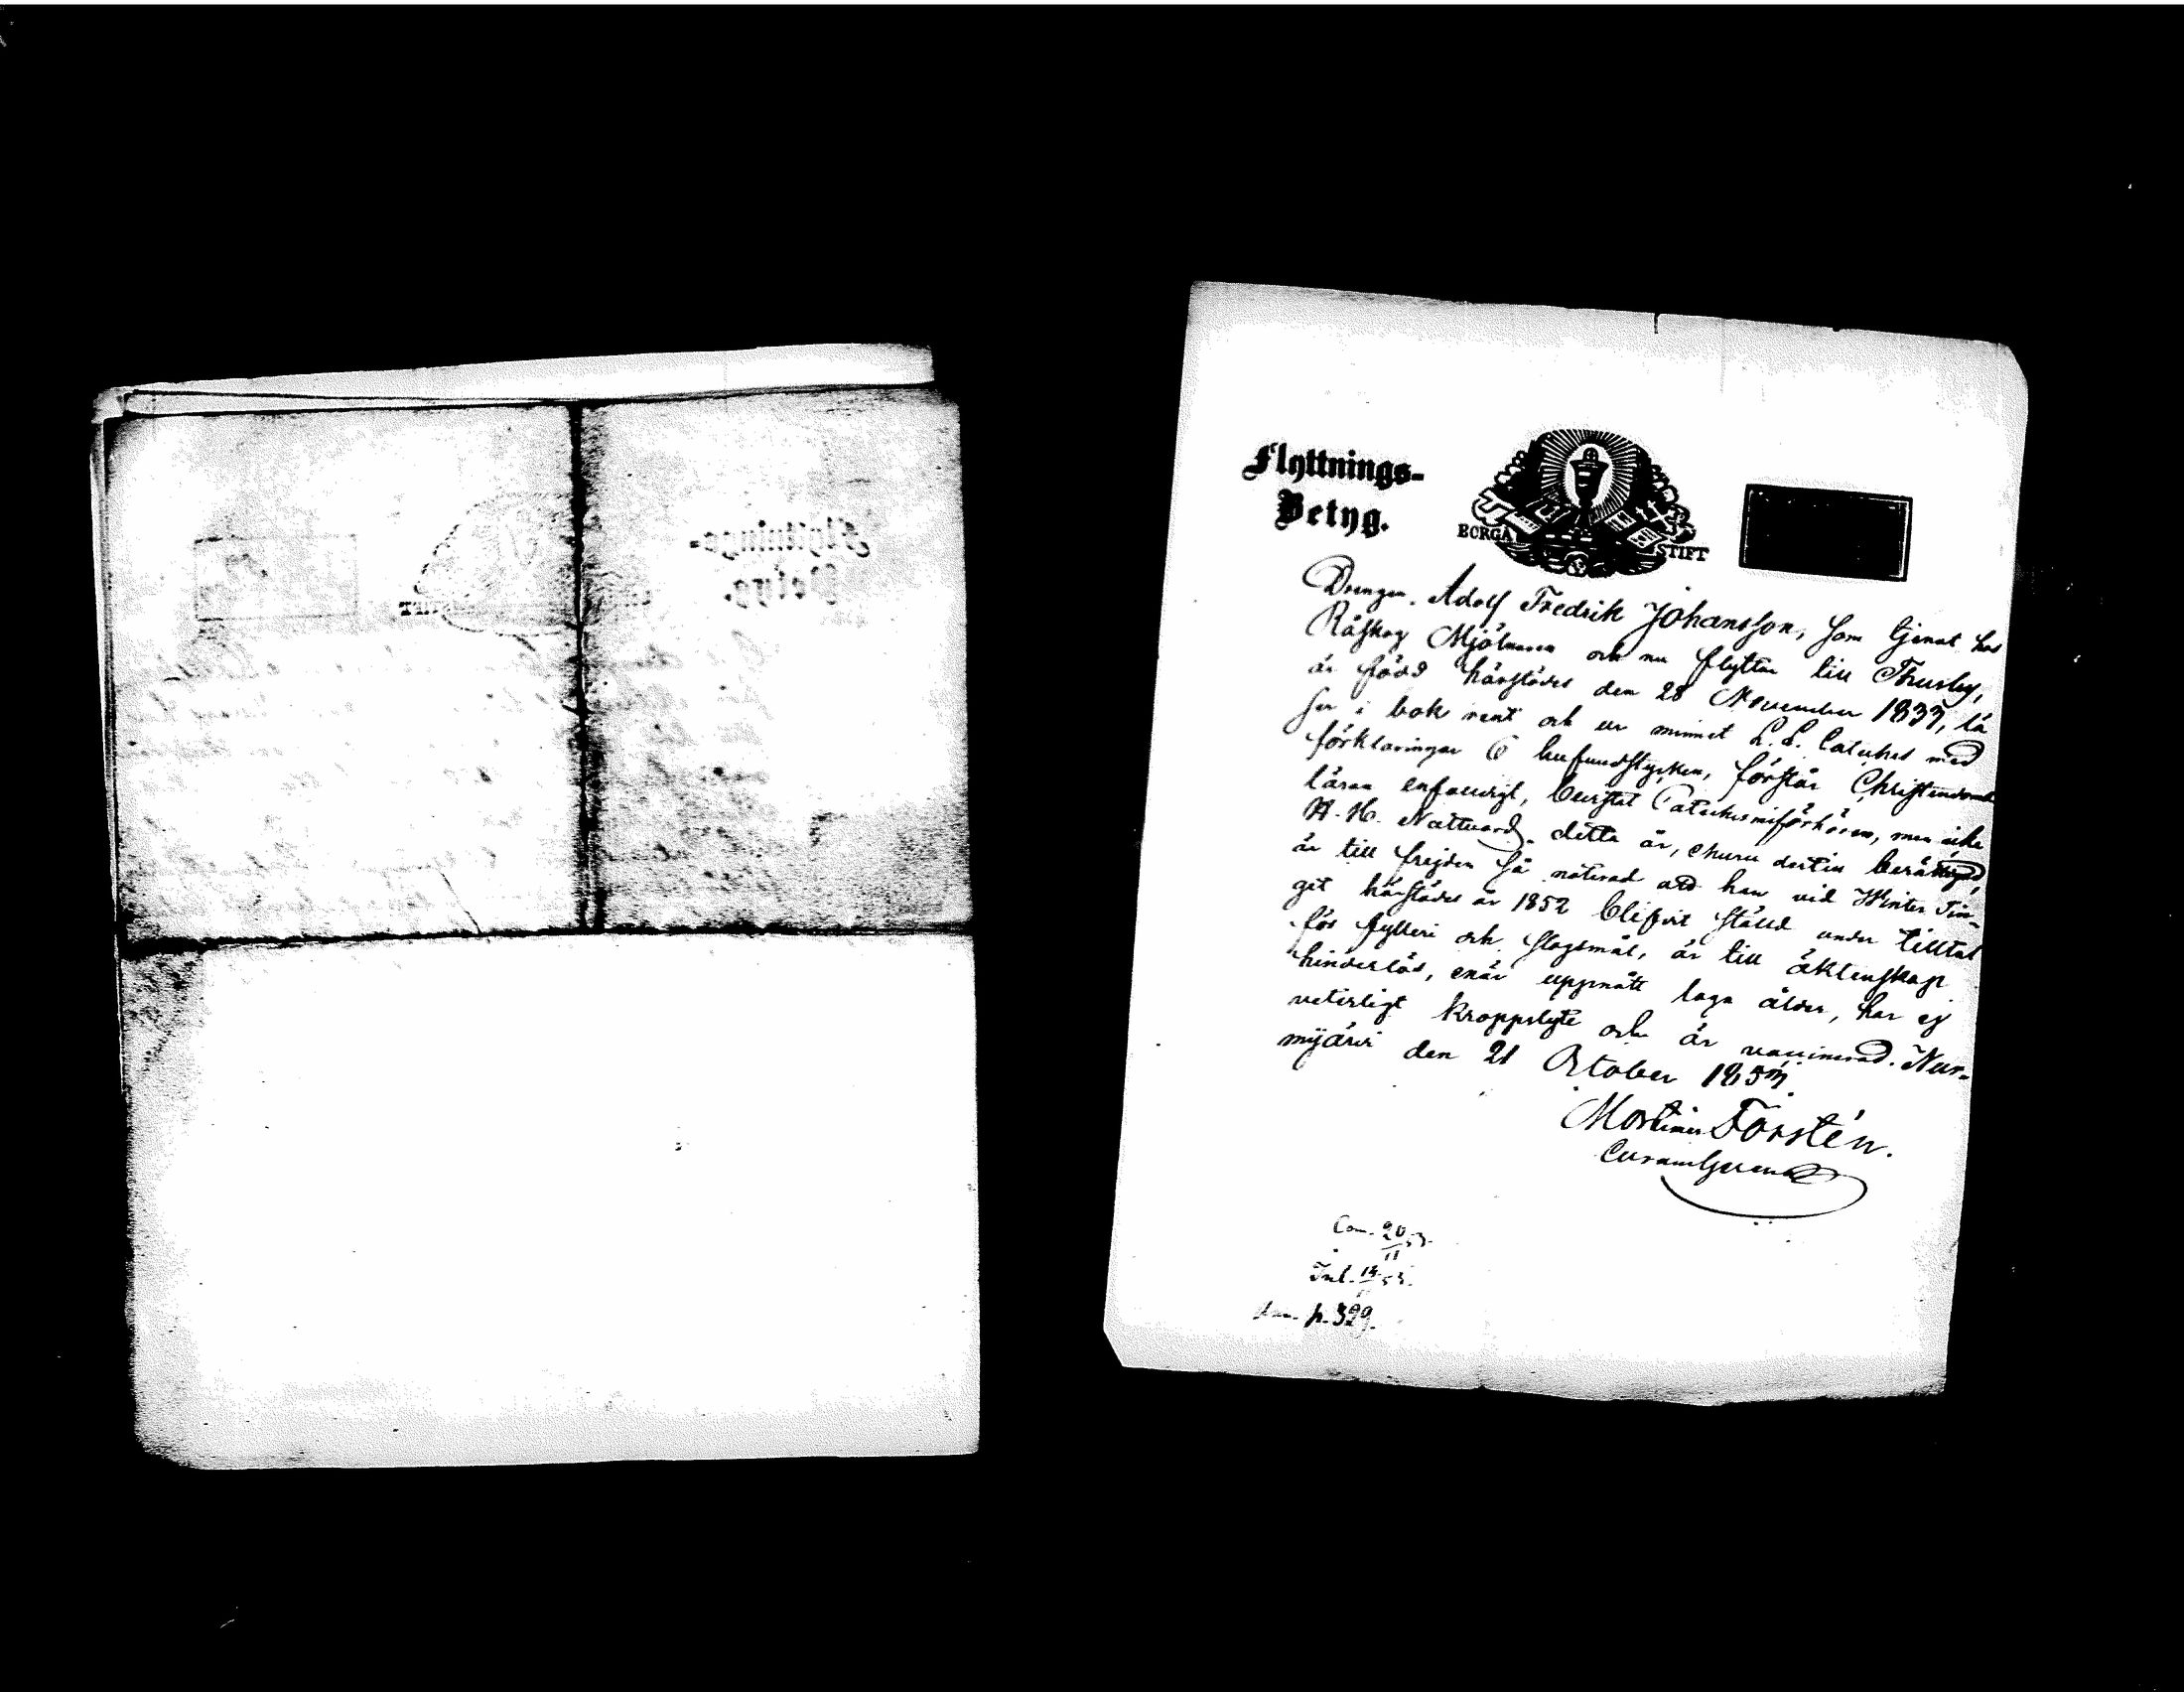 Flyttnings-
Betyg.
BORGÅ STIFT
Drengen Adolf Fredrik Johansson, som tjenat hos
Råskog Mjölnaren och nu flyttar till Thusby,
är född härstädes den 28 November 1833, lä
ser i bok rent och ur minnet L. L. Catechés med
förklaringar & hufvudstycken, förstår Christendoms
läran enfaldigt, bevistat Catechismiförhören, men icke
H. H. Nattvard detta år, ehuru dertill berättigad,
är till frejden så noterad att han vid Winter Tin-
get härstädes år 1852 blifvit ställd under tilltal
för fylleri och slagsmål, är till äktenskap
hinderlös, enär uppnått laga ålder, har ej
veterligt kroppslyte och är vaccinerad. Nur-
mijärvi den 21 October 1853.
Mortimer Forstén.
Curam Gerens
Com. 20/11 53.
Inl. 53.
p. 329.